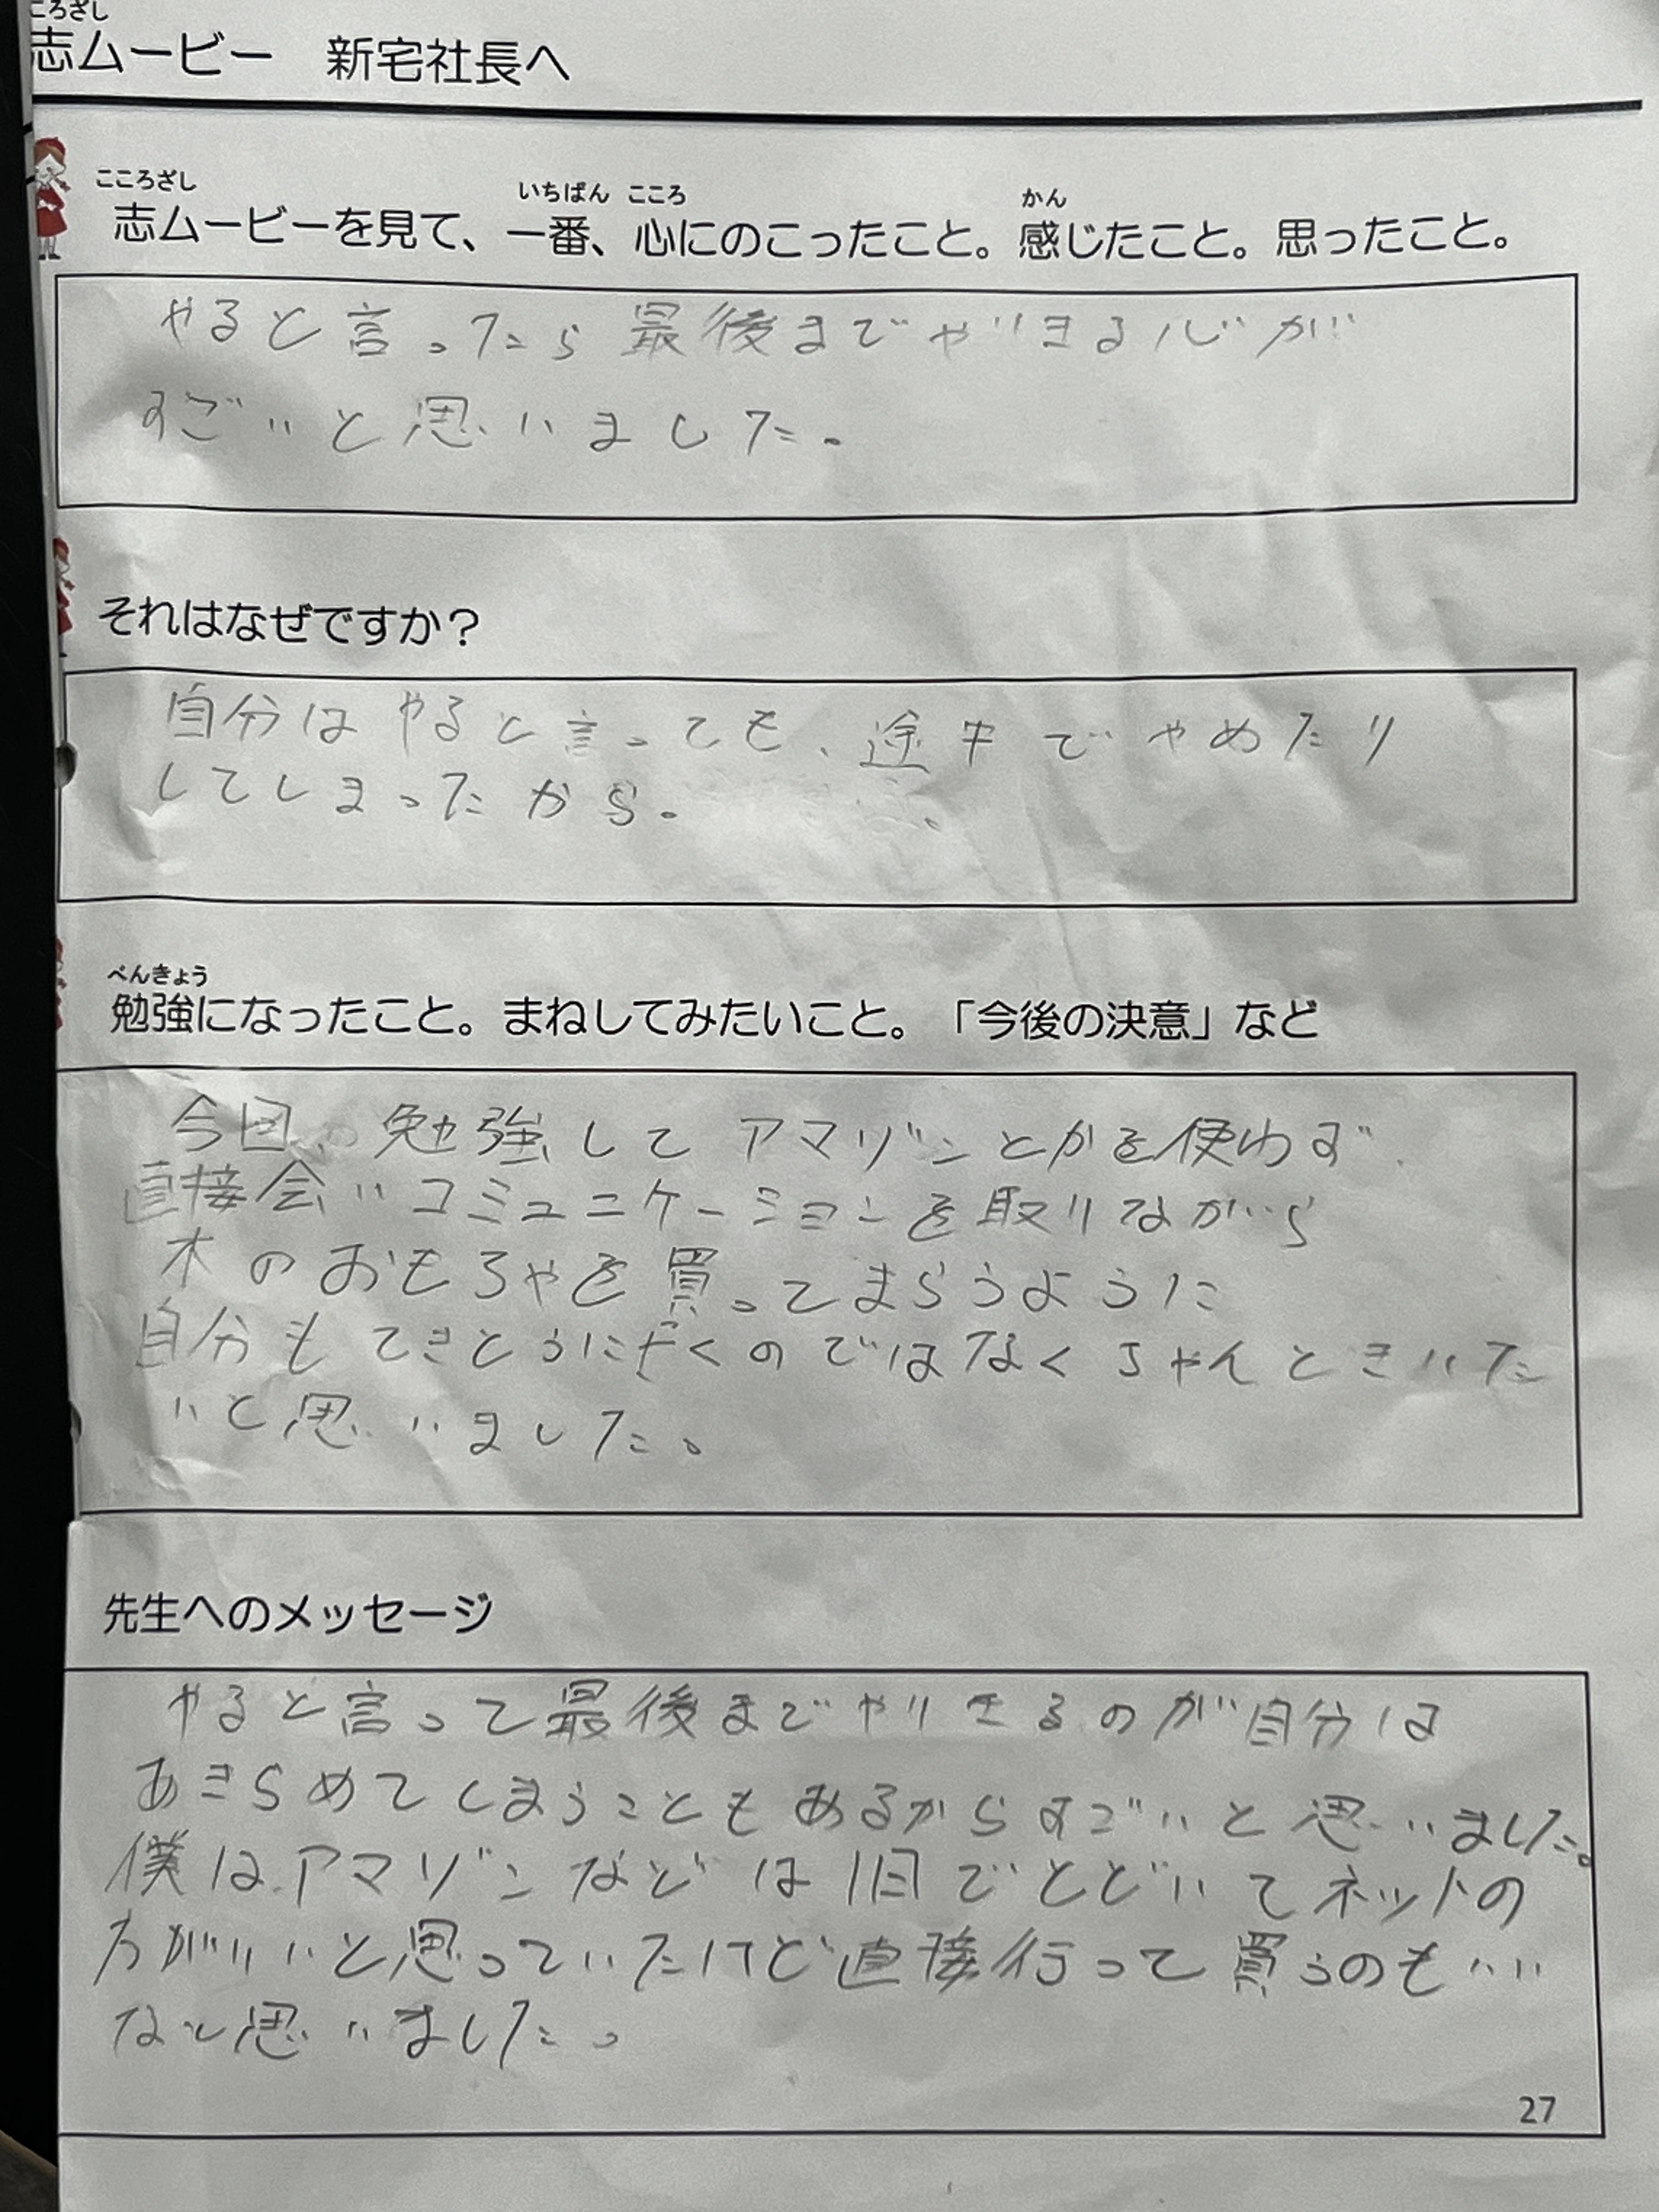 ころざし
志ムービー 新宅社長へ
こころざし いちばん こころ かん
志ムービーを見て、一番、心にのこったこと。感じたこと。思ったこと。
やると言ったら最後までやりきる心が
すごいと思いました。
それはなぜですか?
自分はやると言っても、途中でやめたり
してしまったから。
べんきょう
勉強になったこと。まねしてみたいこと。「今後の決意」など
今回、勉強してアマゾンとかを使わず
直接会いコミュニケーションを取りながら
木のおもちゃを買ってまらうように
自分もてきとうに くのではなくちゃんときいた
いと思いました。
先生へのメッセージ
やると言って最後までやりきるのが自分は
あきらめてしまうこともあるからすごいと思いました。
僕はアマゾンなどは1日でとどいてネットの
方がいいと思っていたけど直接行って買うのもいい
なと思いました。
27